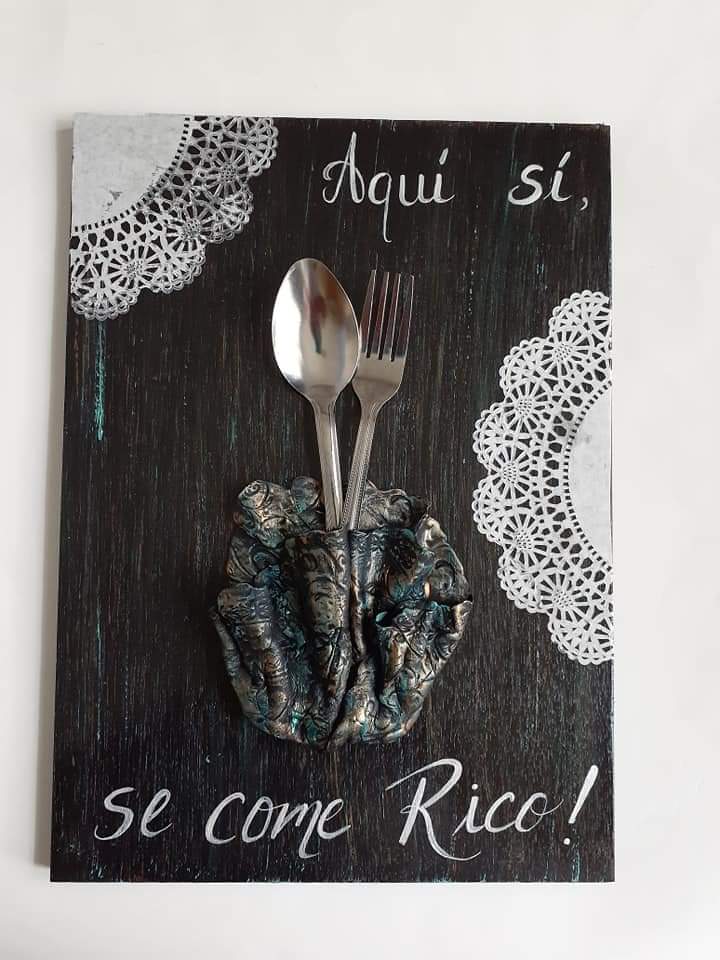 Aquí sí,
se come Rico!